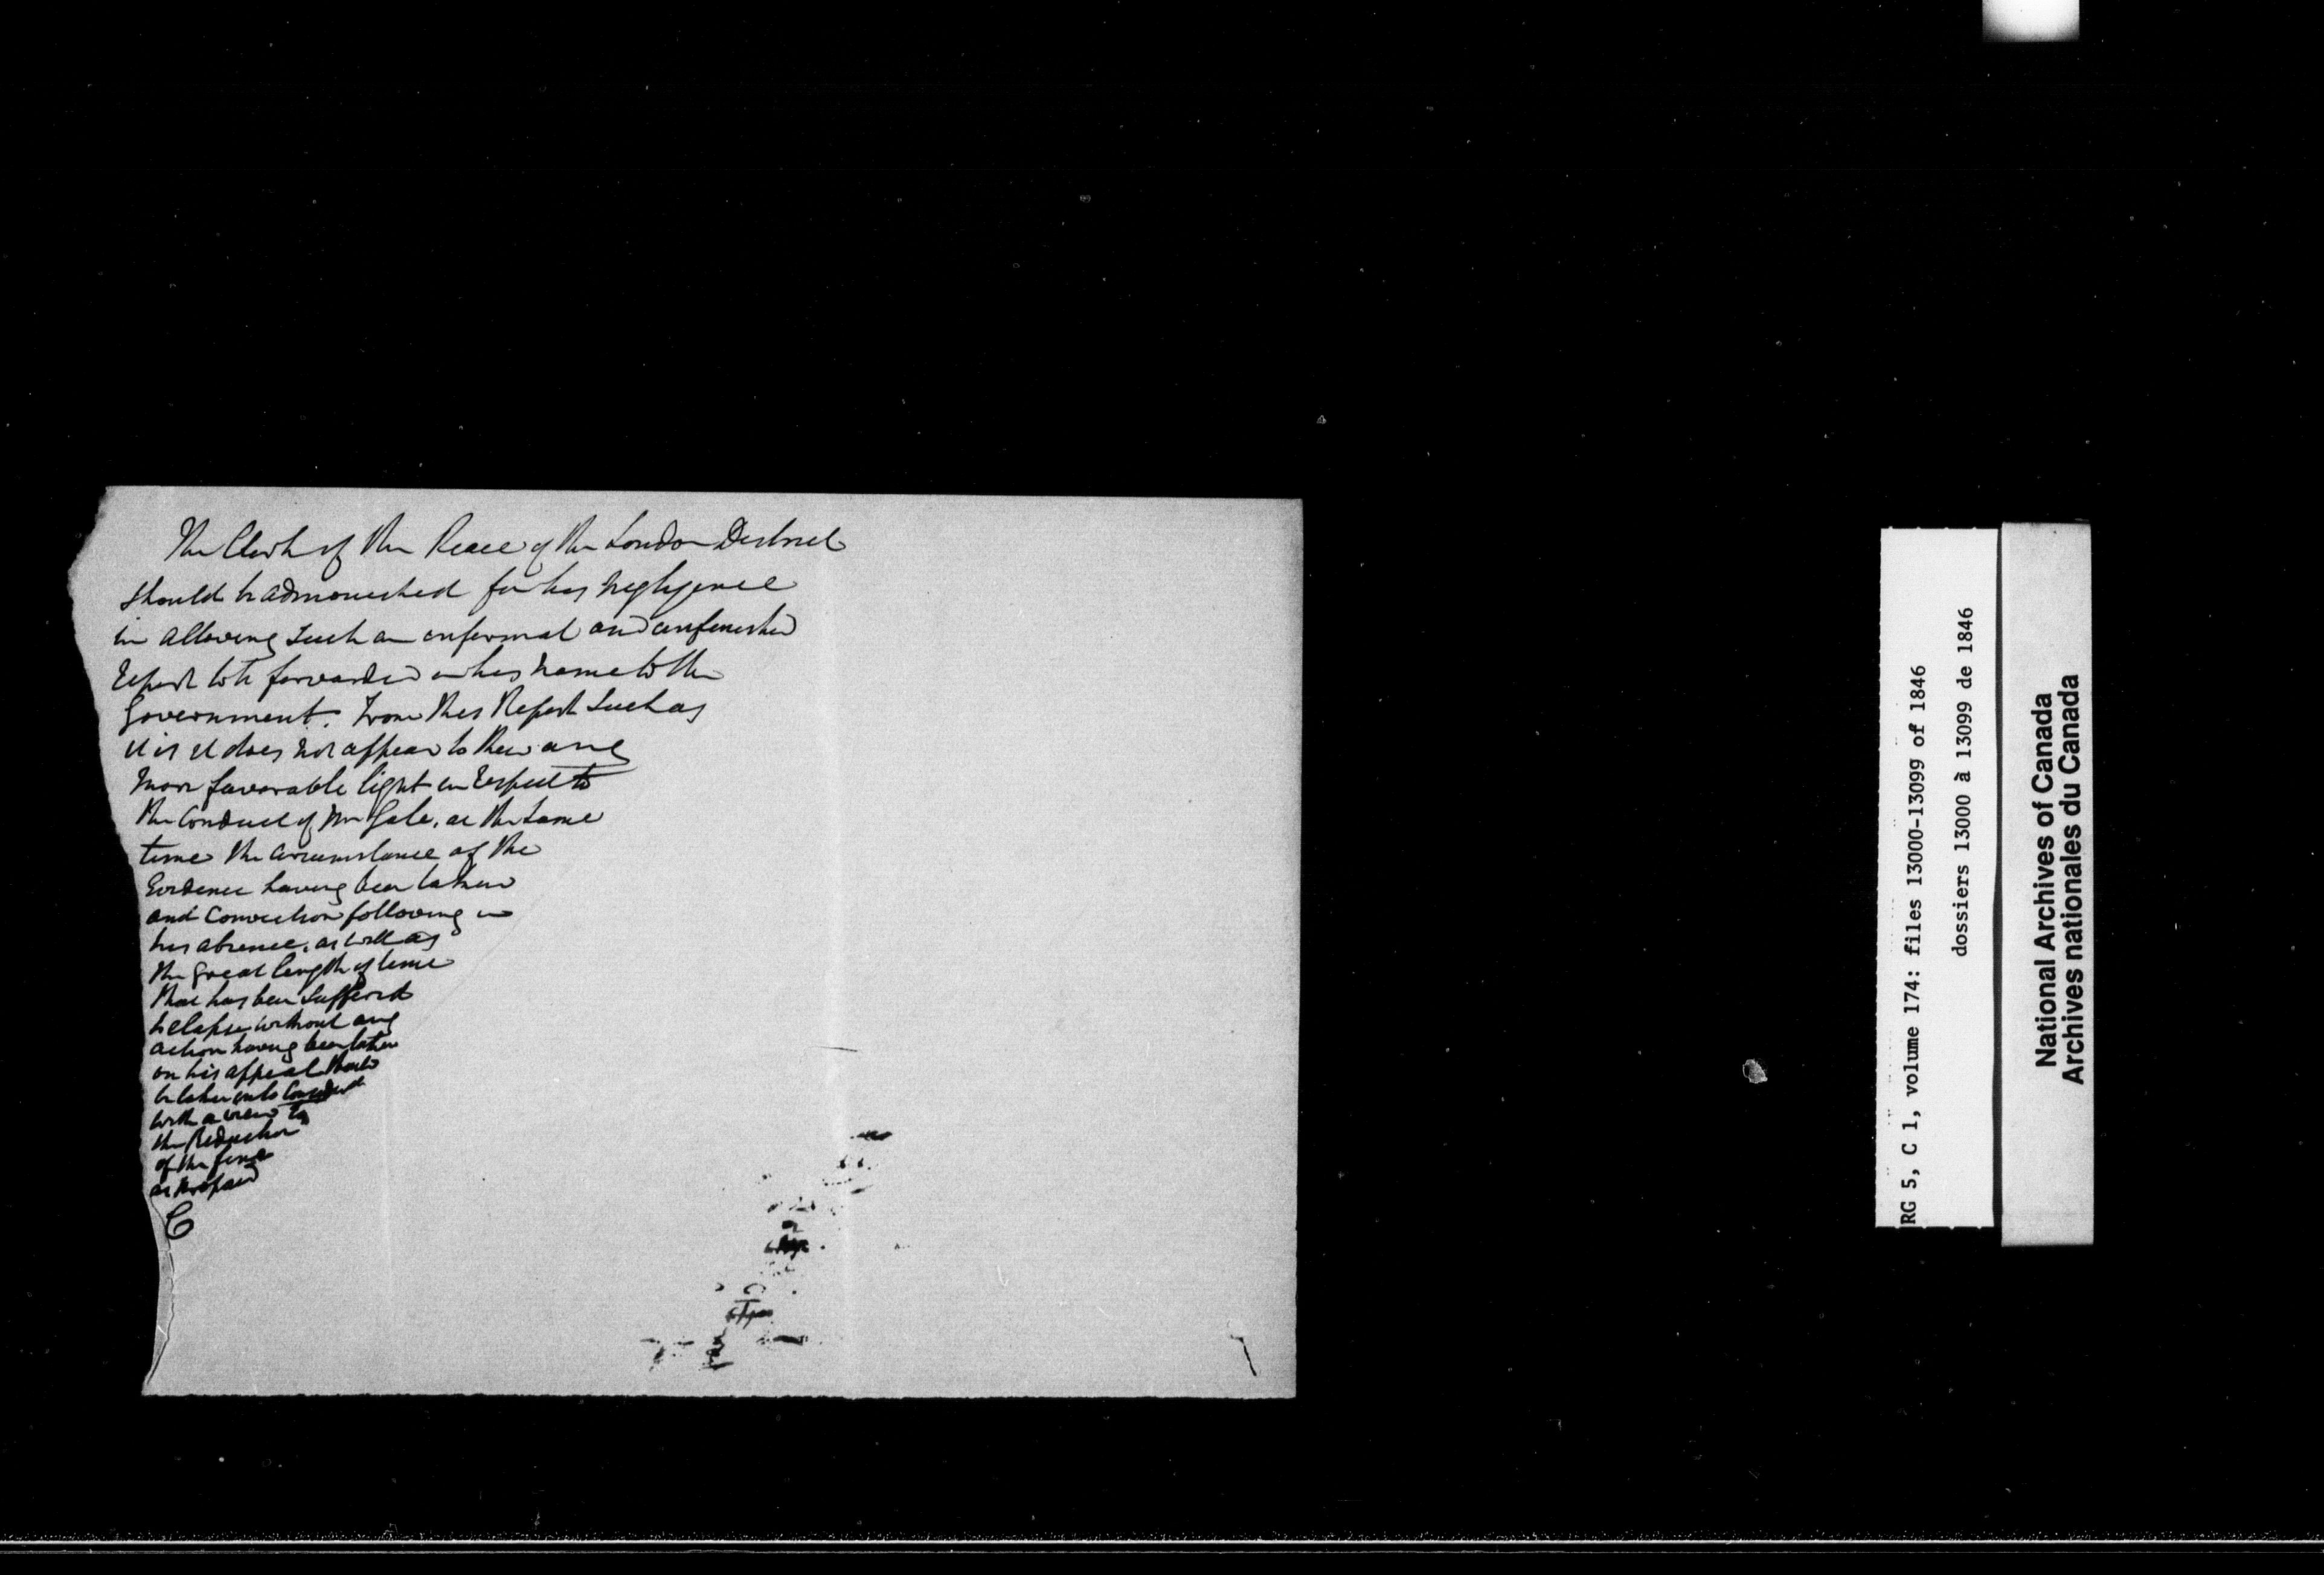 The Clerk of the Peace of the London District
should be admonished for his negligence
in allowing such an informal and unfinished
Report to be forwarded in his name to the
Government. From this Report such as
it is it does not appear to throw any
more favorable light in respect to
the Conduct of Mr Gale, at the same
time the circumstance of the
Evidence having been taken
and Conviction following in
his absence, as well as
the great length of time
that has been suffered
to elapse without any
action having been taken
on his appeal should
be taken into
with a view to
the Reduction
of the fine
C
RG 5, C 1, volume 174: files 13000-13099 of 1846
dossiers 13000 à 13099 de 1846
National Archives of Canada
Archives nationales du Canada